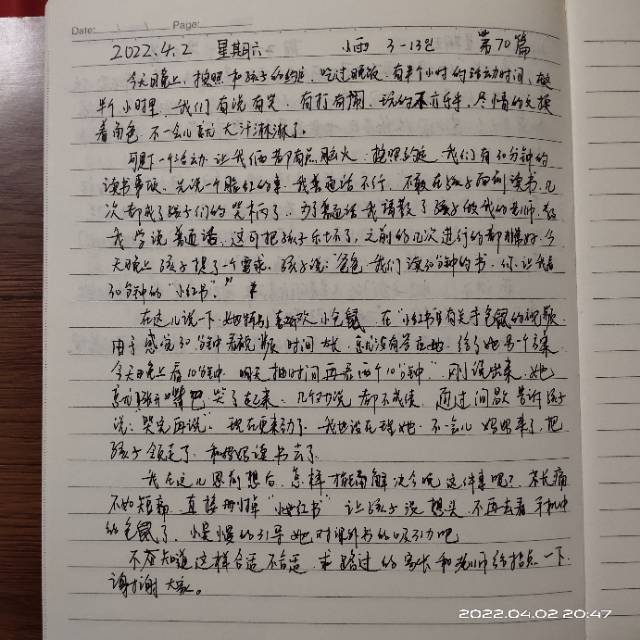 Date: Page:
2022.4.2 星期六 小雨 3-13℃ 第70篇
今天晚上,按照和孩子的约定,吃过晚饭,有半个小时的活动时间,在
半个小时里,我们有说有笑,有打有闹,玩的不亦乐乎,尽情的交换
着角色,不一会儿就大汗淋淋了。
可下一个活动,让我们俩都有点脑火,按照约定,我们有30分钟的
读书事项。先说一个脸红的事,我普通话不行,不敢在孩子面前读书,几
次都成了孩子们的笑柄了,为了普通话我请教了孩子做我的老师,教
我学说普通话,这可把孩子乐坏了,之前的几次进行的都挺好,今
天晚上孩子提了一个要求,孩子说:"爸爸,我们读30分钟的书,你让我看
30分钟的"小红书"。"
在这儿说一下,她特别喜欢小仓鼠,在"小红书"里有关于仓鼠的视频,
由于感觉30分钟看视频时间长,就没有答应她,给了她另一个方案
今天晚上看10分钟,明天抽时间再看两个10分钟",刚说出来,她
就张开嘴巴哭了起来,几次劝说都不成侯,通过间歇告诉孩子
说:"哭完再说"。现在更来劲了,我也没在理她,不一会儿妈妈来了,把
孩子领走了,和妈妈读书去了。
我在这儿思前想后,怎样才能解决今晚这件事呢?长痛
不如短痛,直接删掉"小红书"让孩子没想头,不再去看手机中
的仓鼠了,慢慢的引导她对课外书的吸引力吧
不知道这样合适不合适,求路过的家长和老师给指点一下
谢谢大家。
2022.04.02 20:47